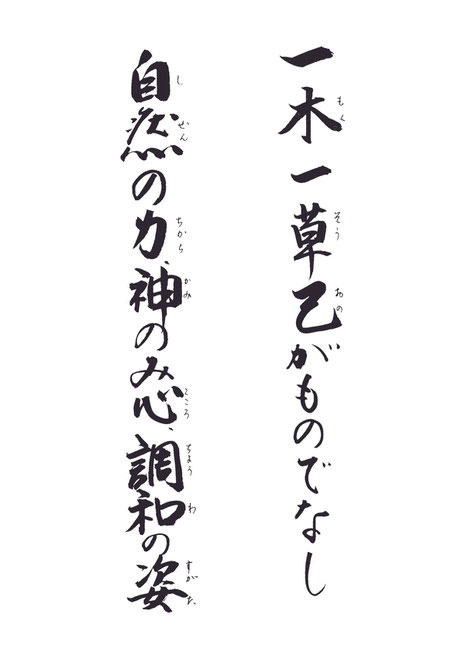 一木一草己がものでなし
自然の力、神のみ心、調和の姿